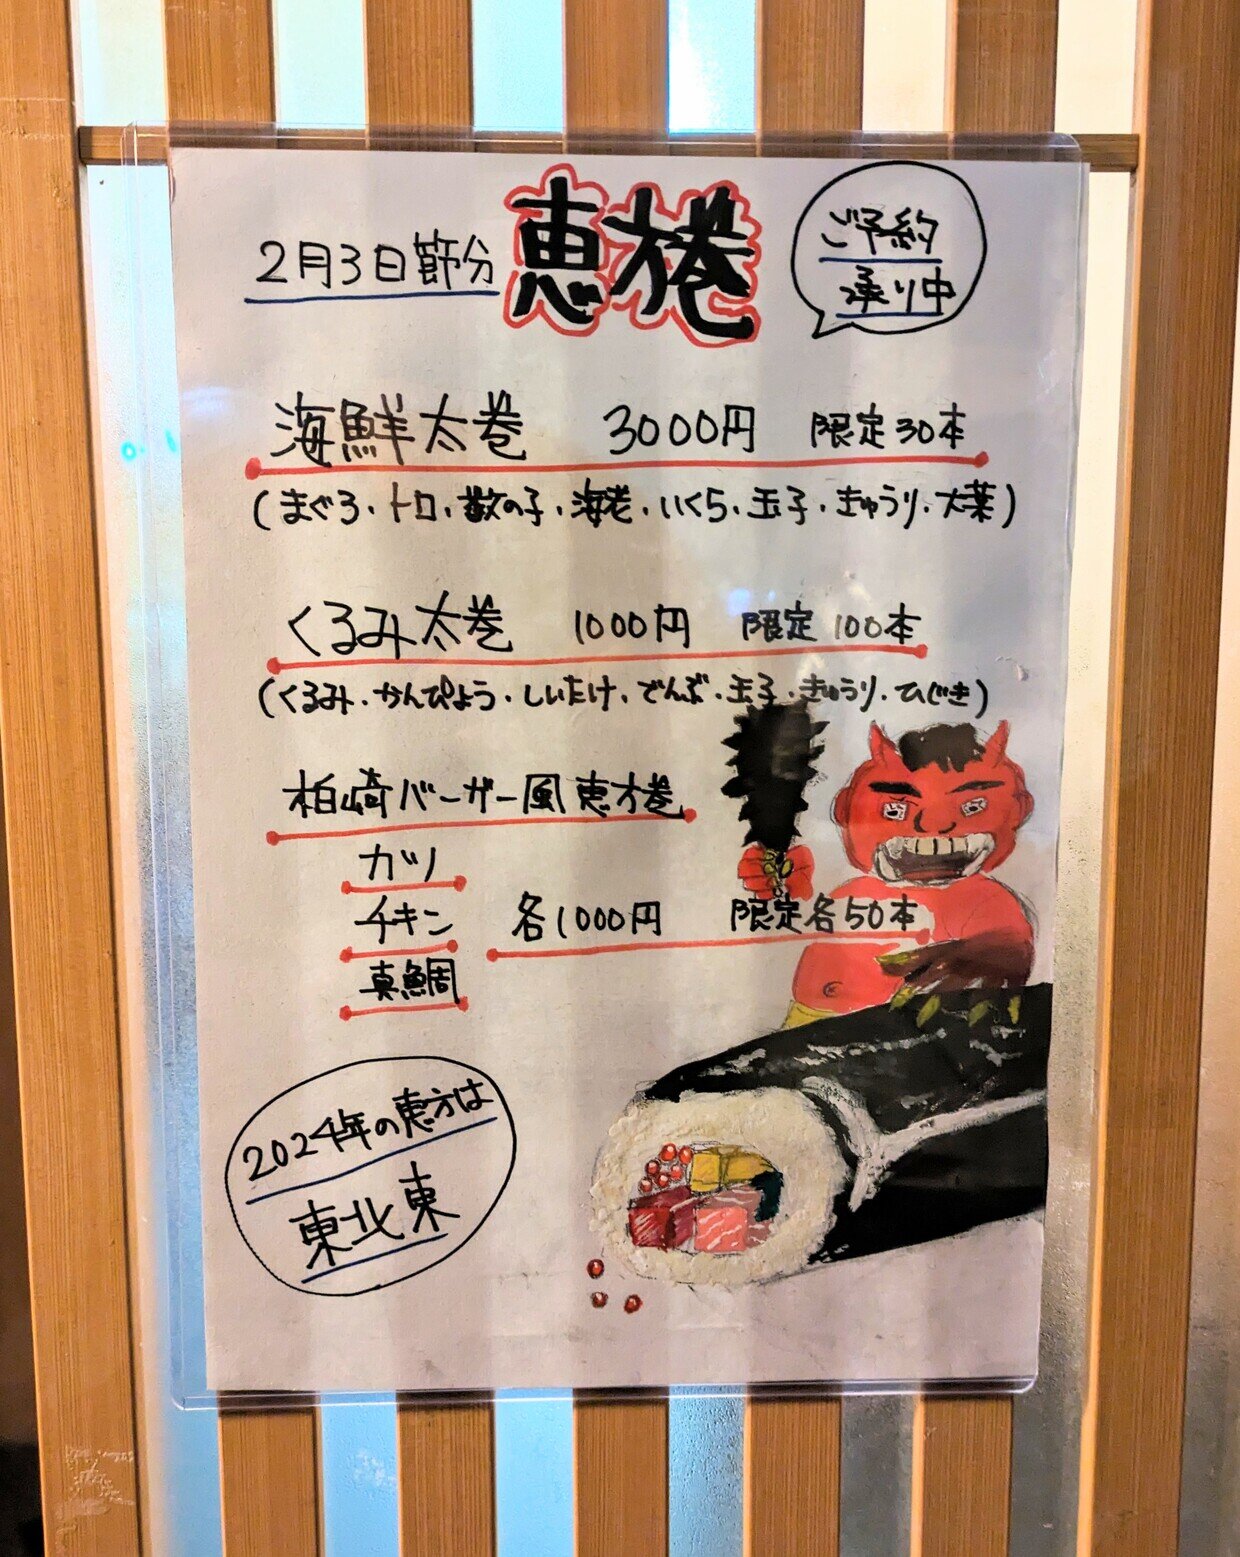 2月3日節分 恵方巻
ご予約
承り中
海鮮太巻 3000円 限定30本
(まぐろ・トロ・数の子・海老・いくら・玉子・きゅうり・大葉)
くるみ太巻 1000円 限定100本
(くるみ・かんぴょう・しいたけ・でんぶ・玉子・きゅうり・ひじき)
柏崎バーガー風恵方巻
カツ
チキン 各1000円 限定各50本
真鯛
2024年の恵方は
東北東